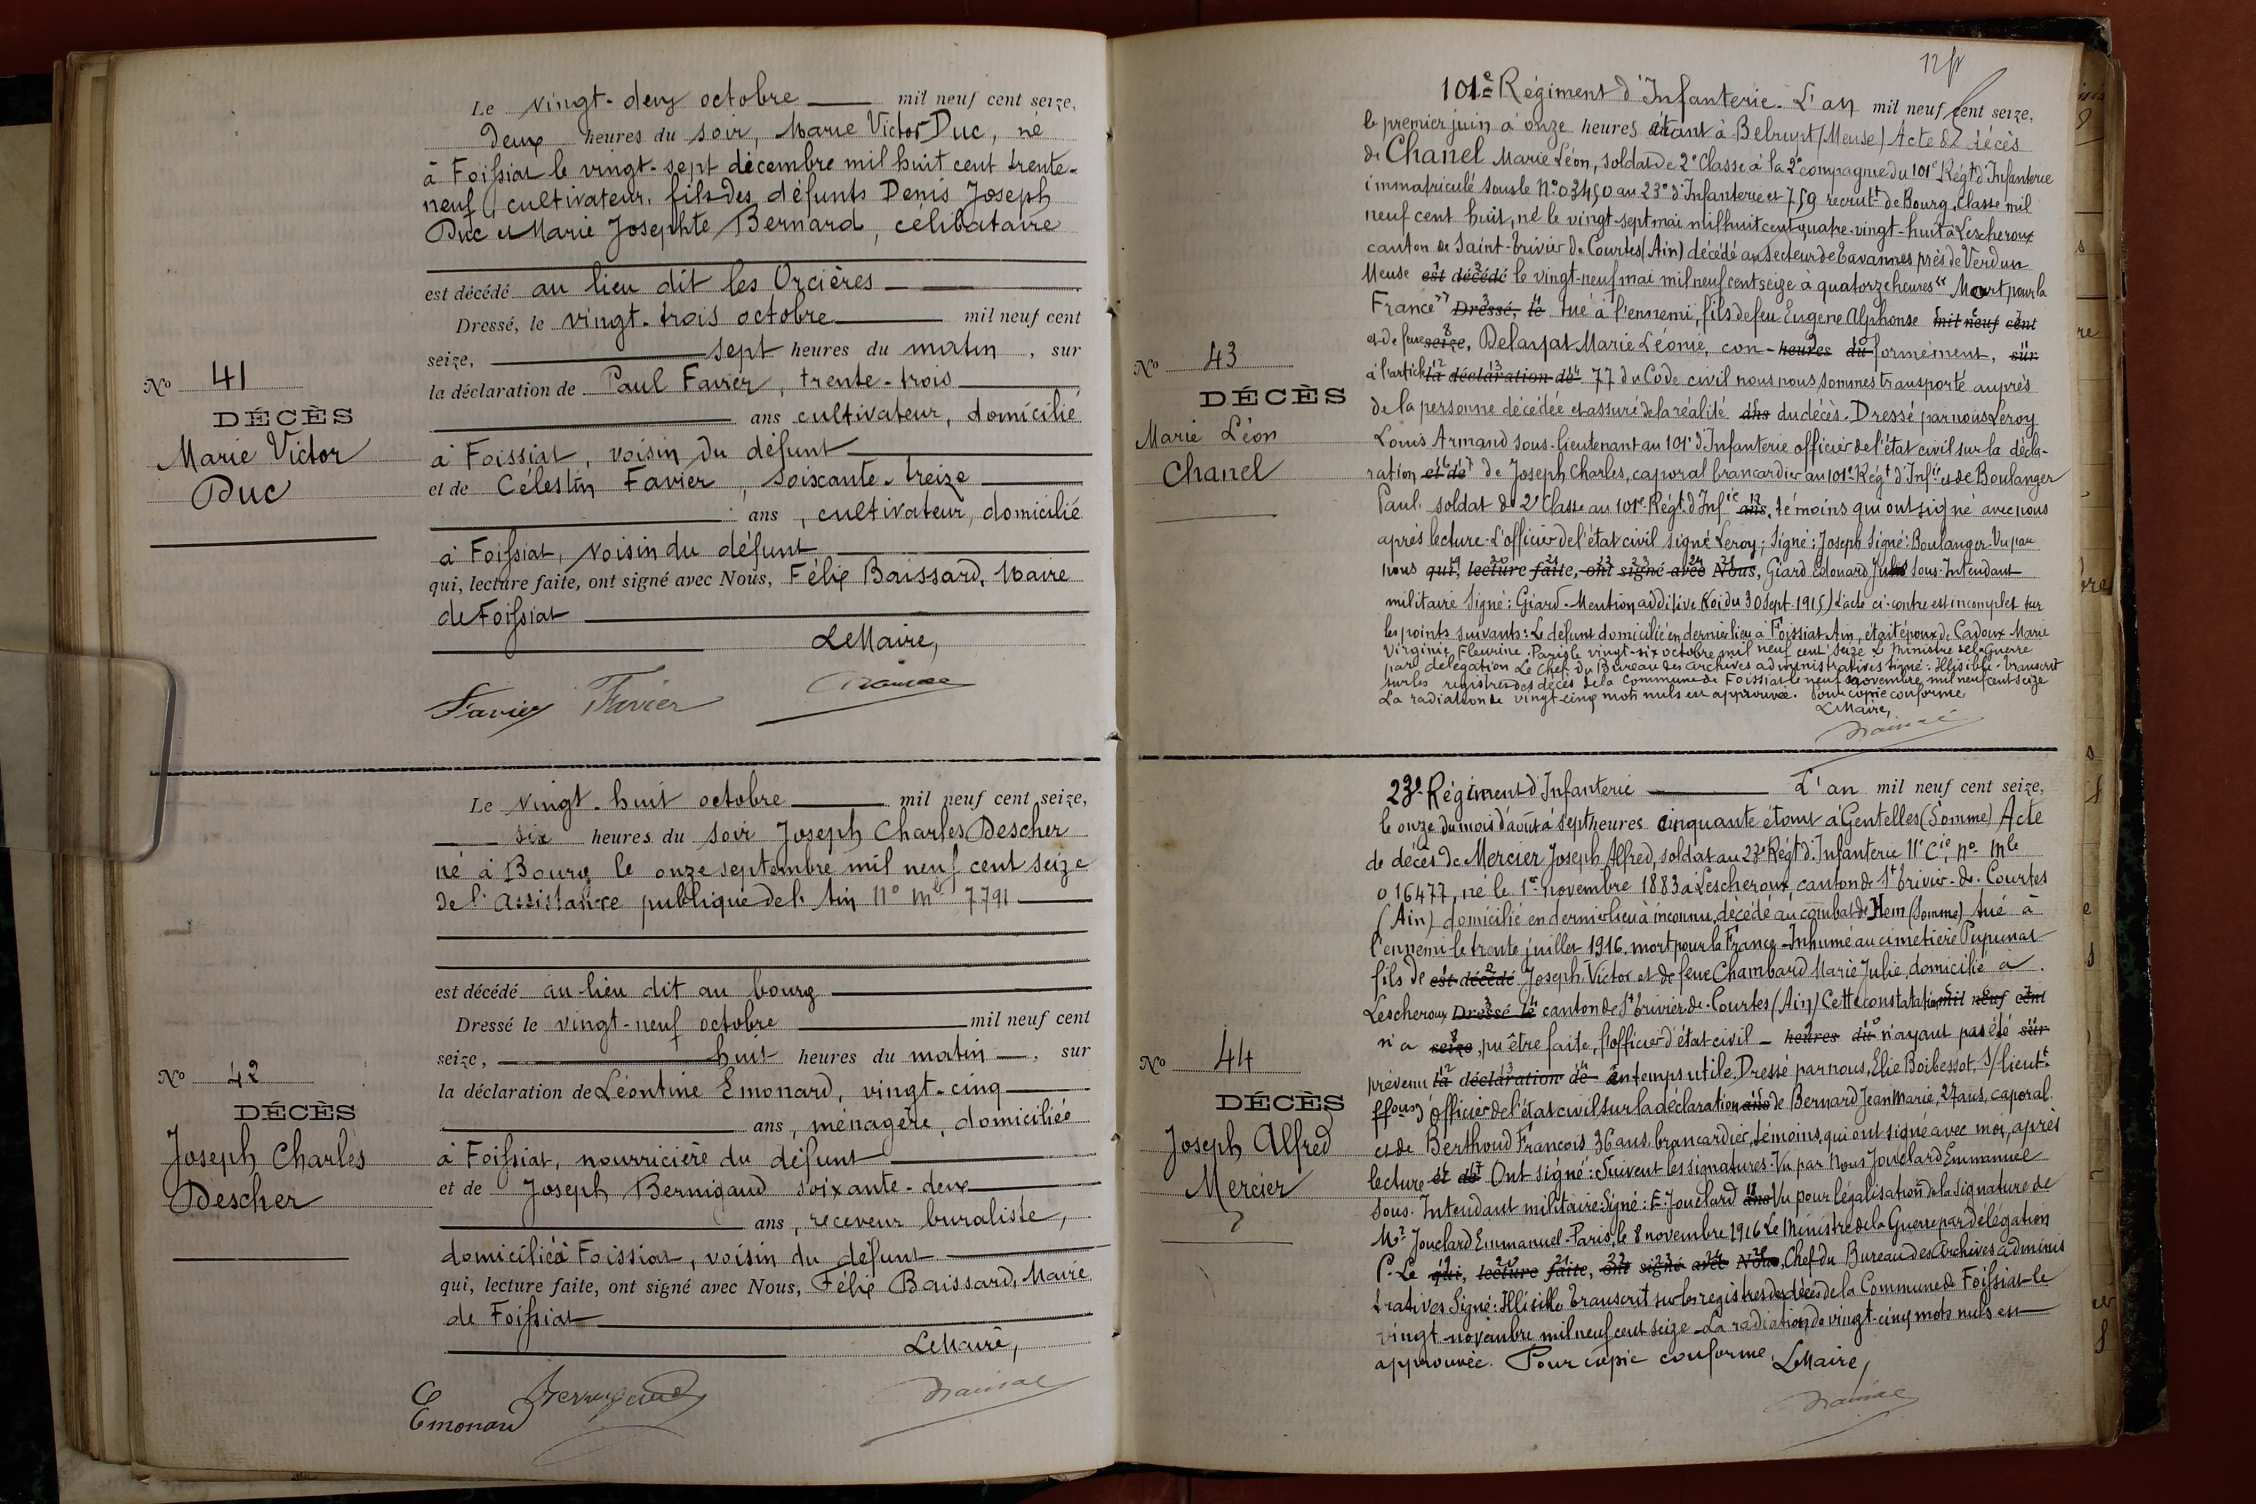 Le vingt-deux octobre mil neuf cent seize,
deux heures du soir, Marie Victor Duc, né
à Foissiat le vingt-sept décembre mil huit cent trente-
neuf, cultivateur, fils des défunts Denis Joseph
Duc et Marie Josephte Bernard, célibataire
est décédé au lieu dit les Orcières
Dressé, le vingt-trois octobre mil neuf cent
seize, sept heures du matin, sur
la déclaration de Paul Favier, trente-trois
ans cultivateur, domicilié
à Foissiat, voisin du défunt
et de Célestin Favier, soixante-treize
ans, cultivateur, domicilié
à Foissiat, voisin du défunt
qui, lecture faite, ont signé avec Nous, Félix Baissard, Maire
de Foissiat
Le Maire,
Favier Favier
No 41
DÉCÈS
Marie Victor
Duc
Le vingt-huit octobre mil neuf cent seize,
six heures du soir Joseph Charles Descher
né à Bourg le onze septembre mil neuf cent seize
de l'assistance publique de l'Ain No mle 7791
est décédé au lieu dit au bourg
Dressé le vingt-neuf octobre mil neuf cent
seize, huit heures du matin, sur
la déclaration de Léontine Emonard, vingt-cinq
ans, ménagère, domiciliée
à Foissiat, nourricière du défunt
et de Joseph Bernigaud soixante-deux
ans, receveur buraliste,
domicilié à Foissiat, voisin du défunt
qui, lecture faite, ont signé avec Nous, Félix Baissard, Maire
de Foissiat
Le Maire,
Emonard Bernigaud
No 42
DÉCÈS
Joseph Charles
Descher
12
101e Régiment d'Infanterie. L'an mil neuf cent seize,
le premier juin à onze heures étant à Belrupt (Meuse) Acte de décès
de Chanel Marie Léon, soldat de 2e Classe à la 2e compagnie du 101e Régt d'Infanterie
immatriculé sous le No 03450 au 23e d'Infanterie et 759 recrutt de Bourg, Classe mil
neuf cent huit, né le vingt-sept mai mil huit cent quatre-vingt-huit à Lescheroux
canton de Saint-Trivier de Courtes (Ain) décédé au secteur de Tavannes près de Verdun
Meuse est décédé le vingt-neuf mai mil neuf cent seize à quatorze heures "Mort pour la
France" Dressé, le tué à l'ennemi, fils de feu Eugène Alphonse mil neuf cent
et de feue seize, Delayat Marie Léonie, con- heures du formément, sur
à l'article la déclaration de 77 du Code civil nous nous sommes transporté auprès
de la personne décédée et assuré de la réalité ans du décès. Dressé par nous Leroy
Louis Armand sous-lieutenant au 101e d'Infanterie officier de l'état civil sur la décla-
ration et de de Joseph Charles, caporal brancardier au 101e Régt d'Infie et de Boulanger
Paul, soldat de 2e Classe au 101e Régt d'Infie ans, témoins qui ont signé avec nous
après lecture. L'officier de l'état civil signé Leroy; Signé: Joseph Signé: Boulanger. Vu par
nous qui, lecture faite, ont signé avec Nous, Giard Edouard Jules Sous-Intendant
militaire Signé: Giard. Mention additive (Loi du 30 sept 1915) L'acte ci-contre est incomplet sur
les points suivants: Le défunt domicilié en dernier lieu à Foissiat Ain, était époux de Cadoux Marie
Virginie Fleurine. Paris le vingt-six octobre mil neuf cent seize Le Ministre de la Guerre
par délégation Le Chef du Bureau des archives administratives signé: Illisible. Transcrit
sur les registres des décès de la Commune de Foissiat le neuf novembre mil neuf cent seize
La radiation de vingt-cinq mots nuls est approuvée. Pour copie conforme
Le Maire,
No 43
DÉCÈS
Marie Léon
Chanel
23e Régiment d'Infanterie L'an mil neuf cent seize,
le onze du mois d'août à sept heures cinquante étant à Gentelles (Somme) Acte
de décès de Mercier Joseph Alfred, soldat au 23e Régt d'Infanterie 11e Cie, no mle
016477, né le 1er novembre 1883 à Lescheroux canton de St Trivier-de-Courtes
(Ain) domicilié en dernier lieu à inconnu, décédé au combat de Hem (Somme) tué à
l'ennemi le trente juillet 1916. mort pour la France. Inhumé au cimetière
fils de est décédé Joseph Victor et de feue Chambard Marie Julie, domicilié à
Lescheroux Dressé le canton de St Trivier-de-Courtes (Ain) Cette constatation mil neuf cent
n'a seize, pu être faite, l'officier d'état civil heures du n'ayant pas été sur
prévenu la déclaration de en temps utile. Dressé par nous, Elie Boibessot, S/lieutt
Officier de l'état civil sur la déclaration ans de Bernard Jean Marie, 27 ans, caporal
et de Berthoud François 36 ans, brancardier, témoins, qui ont signé avec moi, après
lecture et de Ont signé: Suivent les signatures. Vu par Nous Jouclard Emmanuel
Sous-Intendant militaire Signé: E. Jouclard ans Vu pour légalisation de la signature de
Mr Jouclard Emmanuel. Paris, le 8 novembre 1916 Le Ministre de la Guerre par délégation
P. Le qui, lecture faite, ont signé avec Nous, Chef du Bureau des Archives adminis
tratives Signé: Illisible Transcrit sur les registres des décès de la Commune de Foissiat le
vingt novembre mil neuf cent seize. La radiation de vingt-cinq mots nuls est
approuvée. Pour copie conforme, Le Maire,
No 44
DÉCÈS
Joseph Alfred
Mercier